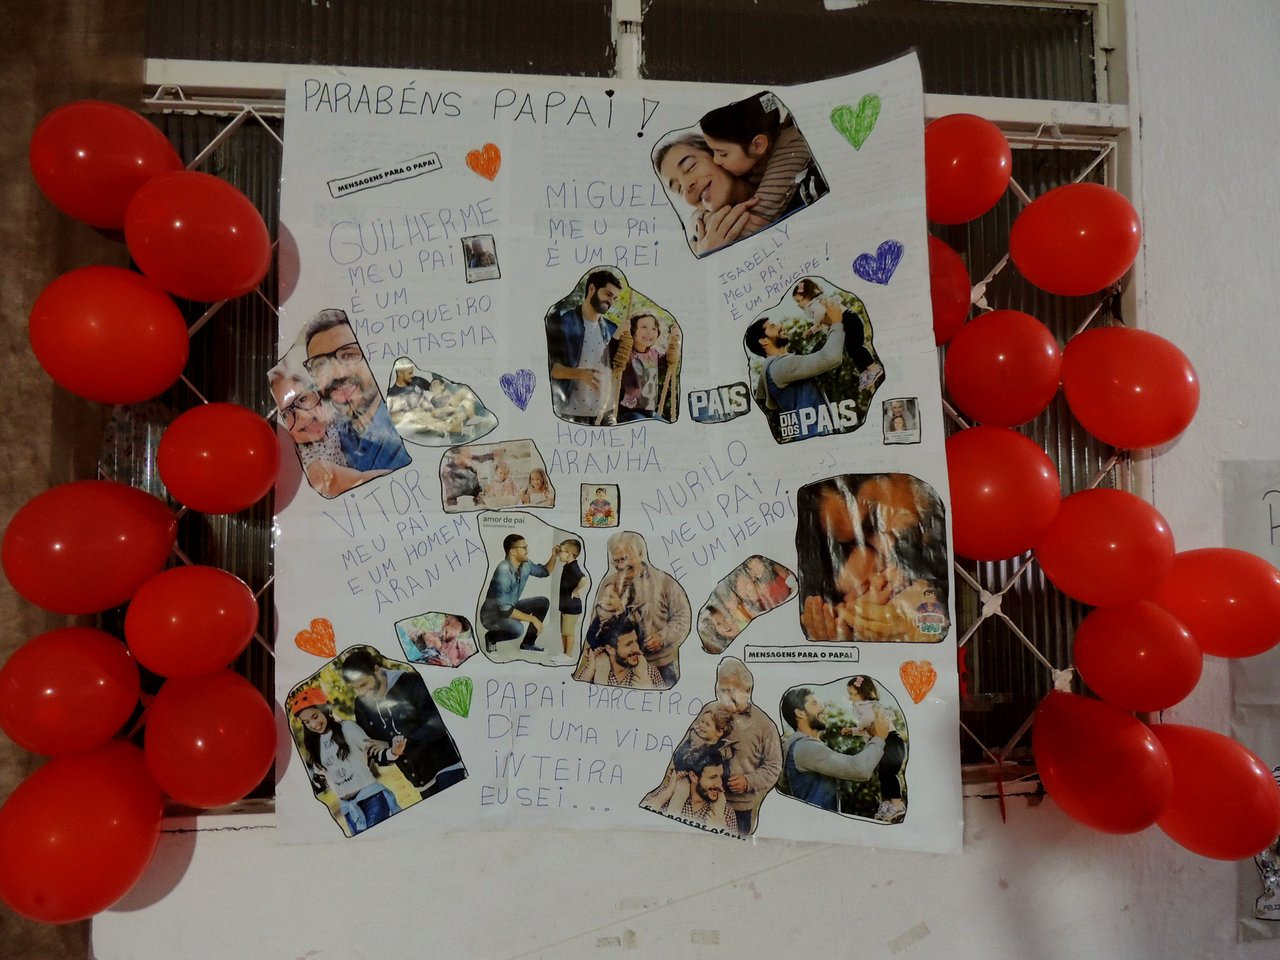 PARABÉNS PAPAi!
MENSAGENS PARA O PAPAI
GUILHERME
MEU PAI
É UM
MOTOQUEIRO
FANTASMA
MiGUEL
MEU PAi
É UM REi
ISABELLY
MEU PAI
É UM PRíNCIPE!
PAIS
DIA
DOS PAIS
HOMEM
ARANHA
VITOR
MEU PAi
E UM HOMEM
ARANHA
amor de pai
MURILO
MEU PAI,
E UM HERÓI
MENSAGENS PARA O PAPAI
PAPAi PARCEIRO
DE UMA VIDA
iNTEIRA
EU SEi...